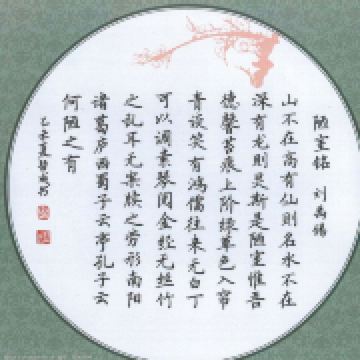 陋室铭 刘禹锡
山不在高有仙则名水不在
深有龙则灵斯是陋室惟吾
德馨苔痕上阶绿草色入帘
青谈笑有鸿儒往来无白丁
可以调素琴阅金经无丝竹
之乱耳无案牍之劳形南阳
诸葛庐西蜀子云亭孔子云
何陋之有